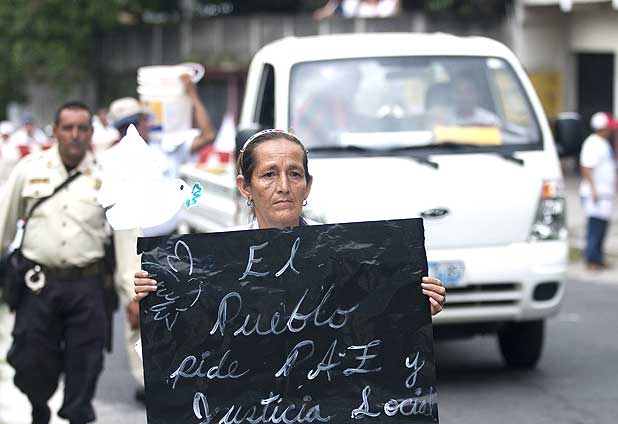 El
Pueblo
pide PAZ y
Justicia Social